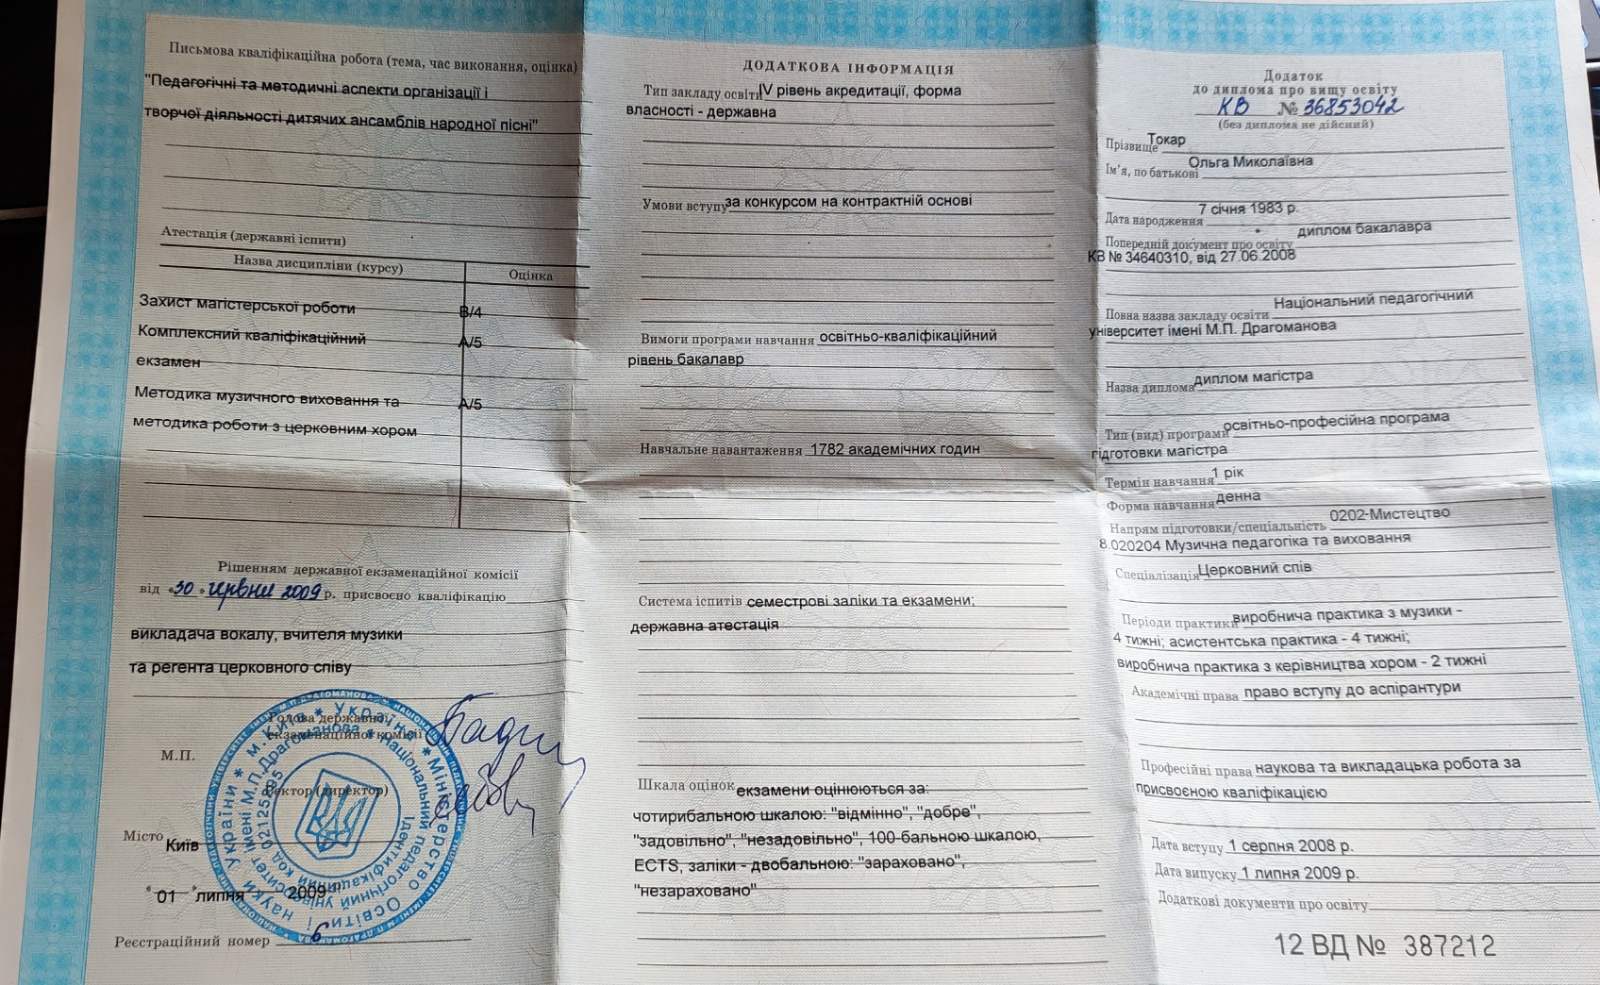 Письмова кваліфікаційна робота (тема, час виконання, оцінка)
"Педагогічні та методичні аспекти організації і
творчої діяльності дитячих ансамблів народної пісні"
Атестація (державні іспити)
Назва дисципліни (курсу) Оцінка
Захист магістерської роботи В/4
Комплексний кваліфікаційний А/5
екзамен
Методика музичного виховання та А/5
методика роботи з церковним хором
Рішенням державної екзаменаційної комісії
від "30" червня 2009 р. присвоєно кваліфікацію
викладача вокалу, вчителя музики
та регента церковного співу
Голова державної
екзаменаційної комісії
М.П.
Ректор (директор)
Місто Київ
"01" липня 2009 р.
Реєстраційний номер
Україна * м.Київ *
Міністерство освіти і науки України
Національний педагогічний університет імені М.П.Драгоманова
Ідентифікаційний код 02125295
ДОДАТКОВА ІНФОРМАЦІЯ
Тип закладу освіти IV рівень акредитації, форма
власності - державна
Умови вступу за конкурсом на контрактній основі
Вимоги програми навчання освітньо-кваліфікаційний
рівень бакалавр
Навчальне навантаження 1782 академічних годин
Система іспитів семестрові заліки та екзамени;
державна атестація
Шкала оцінок екзамени оцінюються за:
чотирибальною шкалою: "відмінно", "добре",
"задовільно", "незадовільно", 100-бальною шкалою,
ECTS, заліки - двобальною: "зараховано",
"незараховано"
Додаток
до диплома про вищу освіту
КВ № 36853042
(без диплома не дійсний)
Прізвище Токар
Ім'я, по батькові Ольга Миколаївна
Дата народження 7 січня 1983 р.
Попередній документ про освіту диплом бакалавра
КВ № 34640310, від 27.06.2008
Повна назва закладу освіти Національний педагогічний
університет імені М.П. Драгоманова
Назва диплома диплом магістра
Тип (вид) програми освітньо-професійна програма
підготовки магістра
Термін навчання 1 рік
Форма навчання денна
Напрям підготовки/спеціальність 0202-Мистецтво
8.020204 Музична педагогіка та виховання
Спеціалізація Церковний спів
Періоди практики виробнича практика з музики -
4 тижні; асистентська практика - 4 тижні;
виробнича практика з керівництва хором - 2 тижні
Академічні права право вступу до аспірантури
Професійні права наукова та викладацька робота за
присвоєною кваліфікацією
Дата вступу 1 серпня 2008 р.
Дата випуску 1 липня 2009 р.
Додаткові документи про освіту
12 ВД № 387212